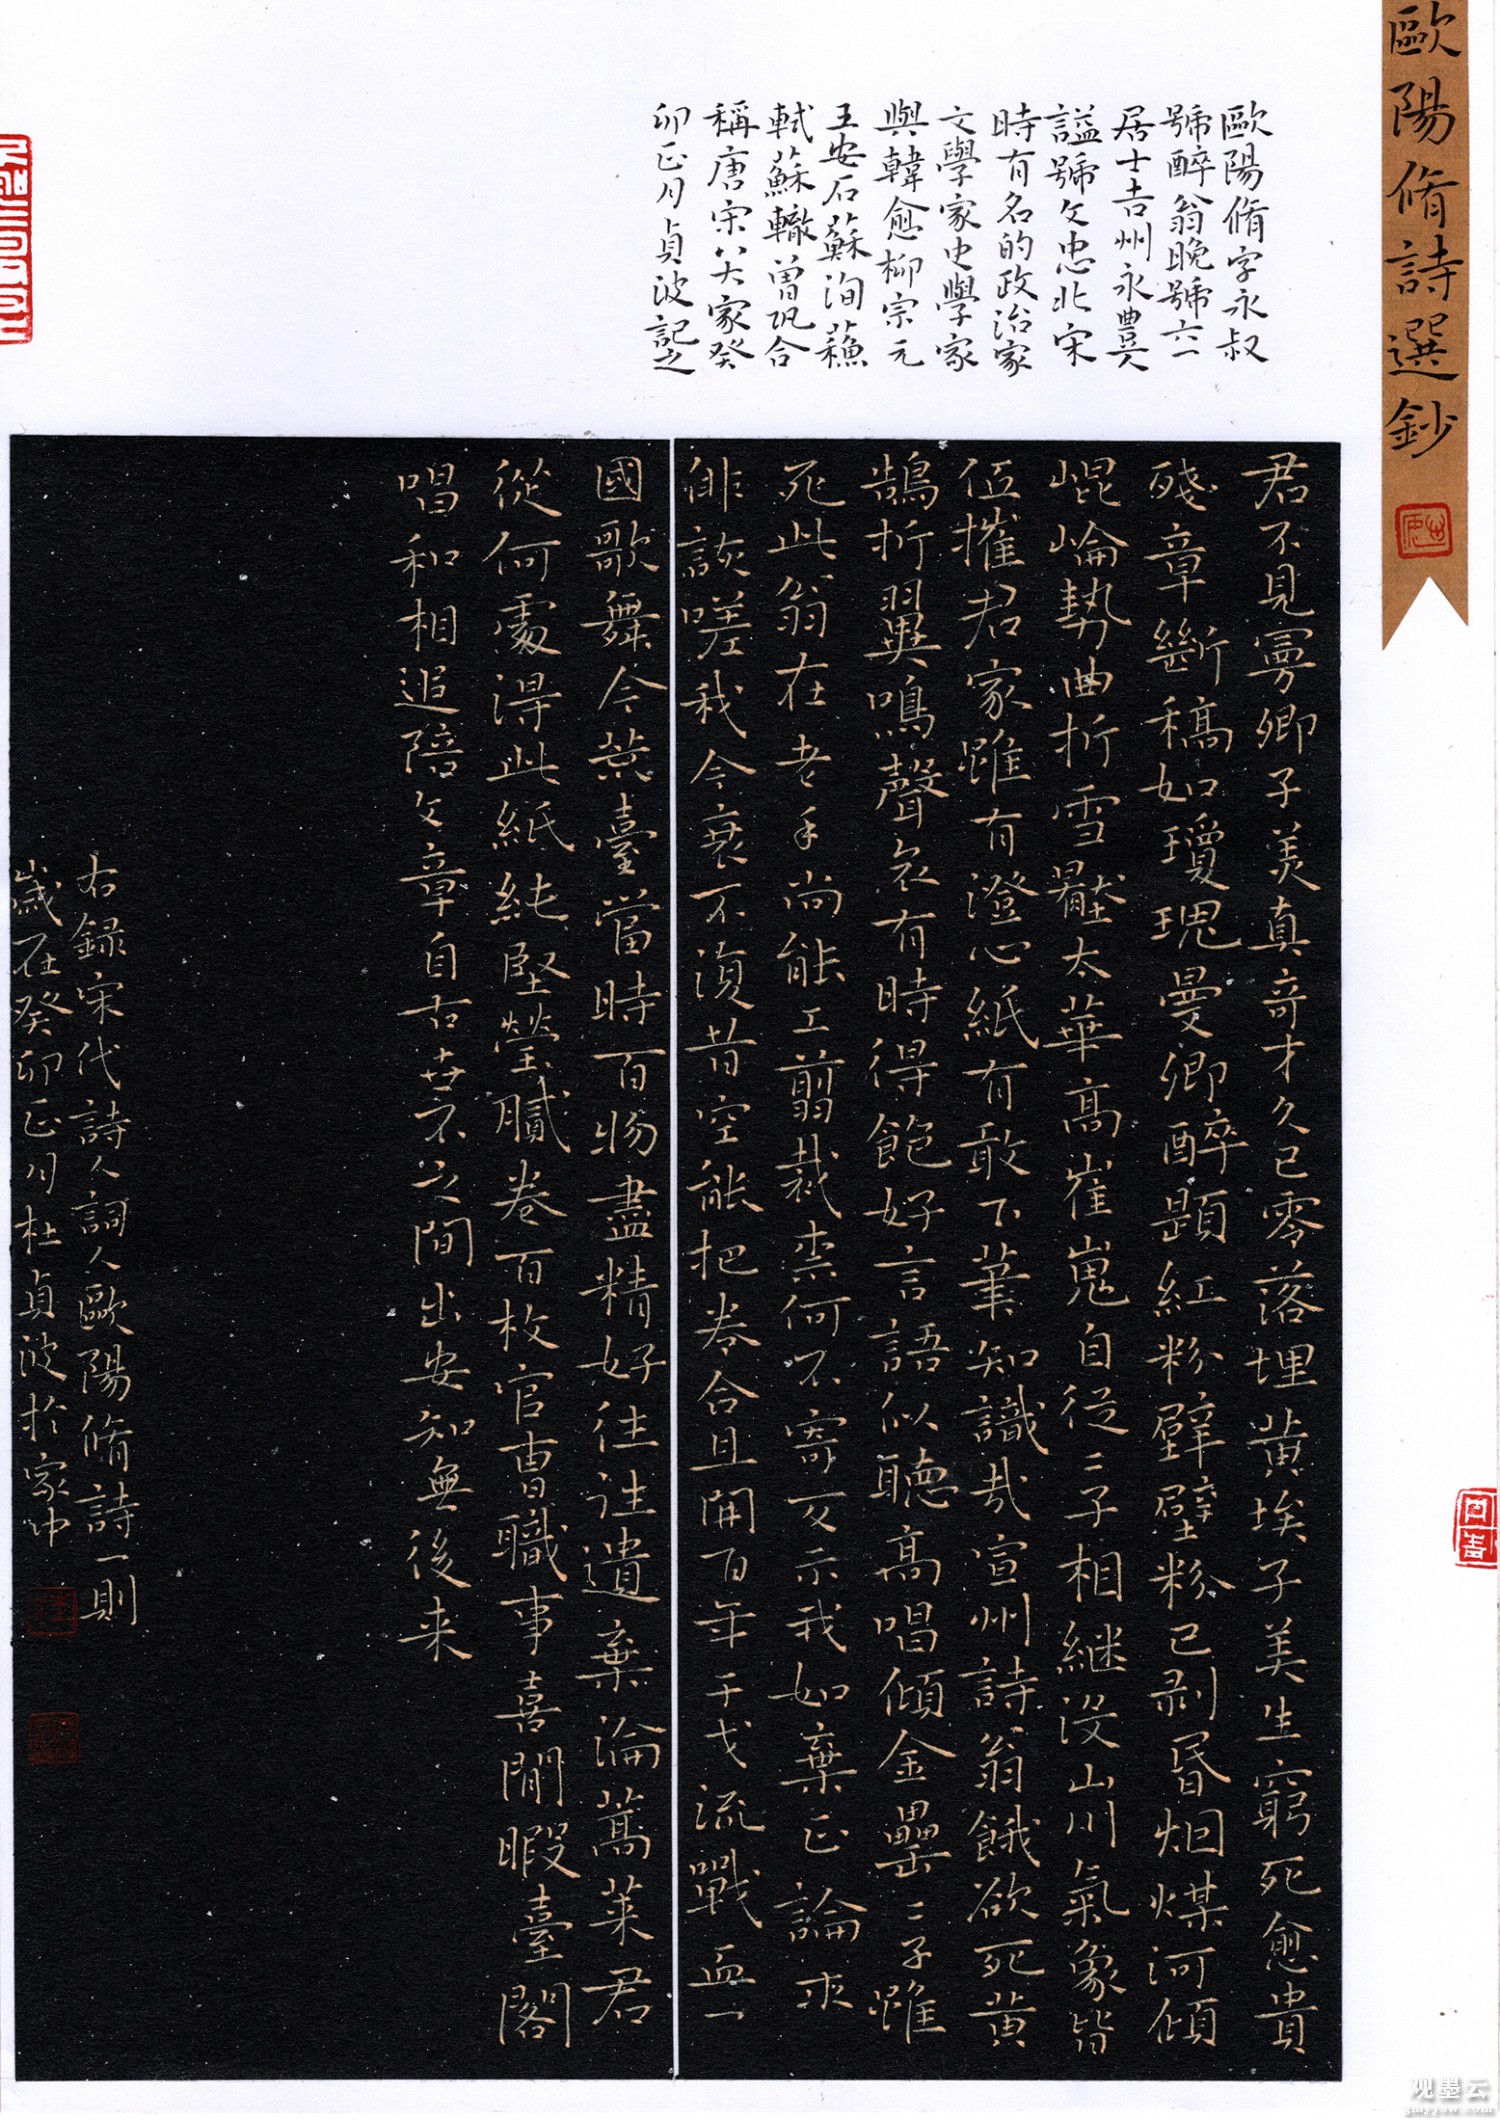 歐陽脩詩選鈔
歐陽脩字永叔
號醉翁晚號六一
居士吉州永豐人
謚號文忠北宋
時有名的政治家
文學家史學家
與韓愈柳宗元
王安石蘇洵蘇
軾蘇轍曾巩合
稱唐宋八大家癸
卯正月貞波記之
君不見曼卿子美真奇才久已零落埋黄埃子美生窮死愈貴
殘章斷稿如瓊瑰曼卿醉題紅粉壁壁粉已剥昏烟煤河傾
崐崘勢曲折雪壓太華高崔嵬自從二子相継没山川氣象皆
低摧君家雖有澄心紙有敢下筆知識哉宣州詩翁餓欲死黄
鵠折翼鳴聲哀有時得飽好言語似聽高唱傾金罍二子雖
死此翁在老手尚能工翦裁柰何不寄反示我如棄正論求
俳詼嗟我今衰不復昔空能把卷合且開百年干戈流戰血一
國歌舞今荒臺當時百物盡精好往往遺棄淪蒿萊君
從何處得此紙純堅瑩膩卷百枚官曹職事喜閒暇臺閣
唱和相追陪文章自古世不乏間出安知無後来
右録宋代詩人詞人歐陽脩詩一則
歲在癸卯正月杜貞波於家中
观墨云